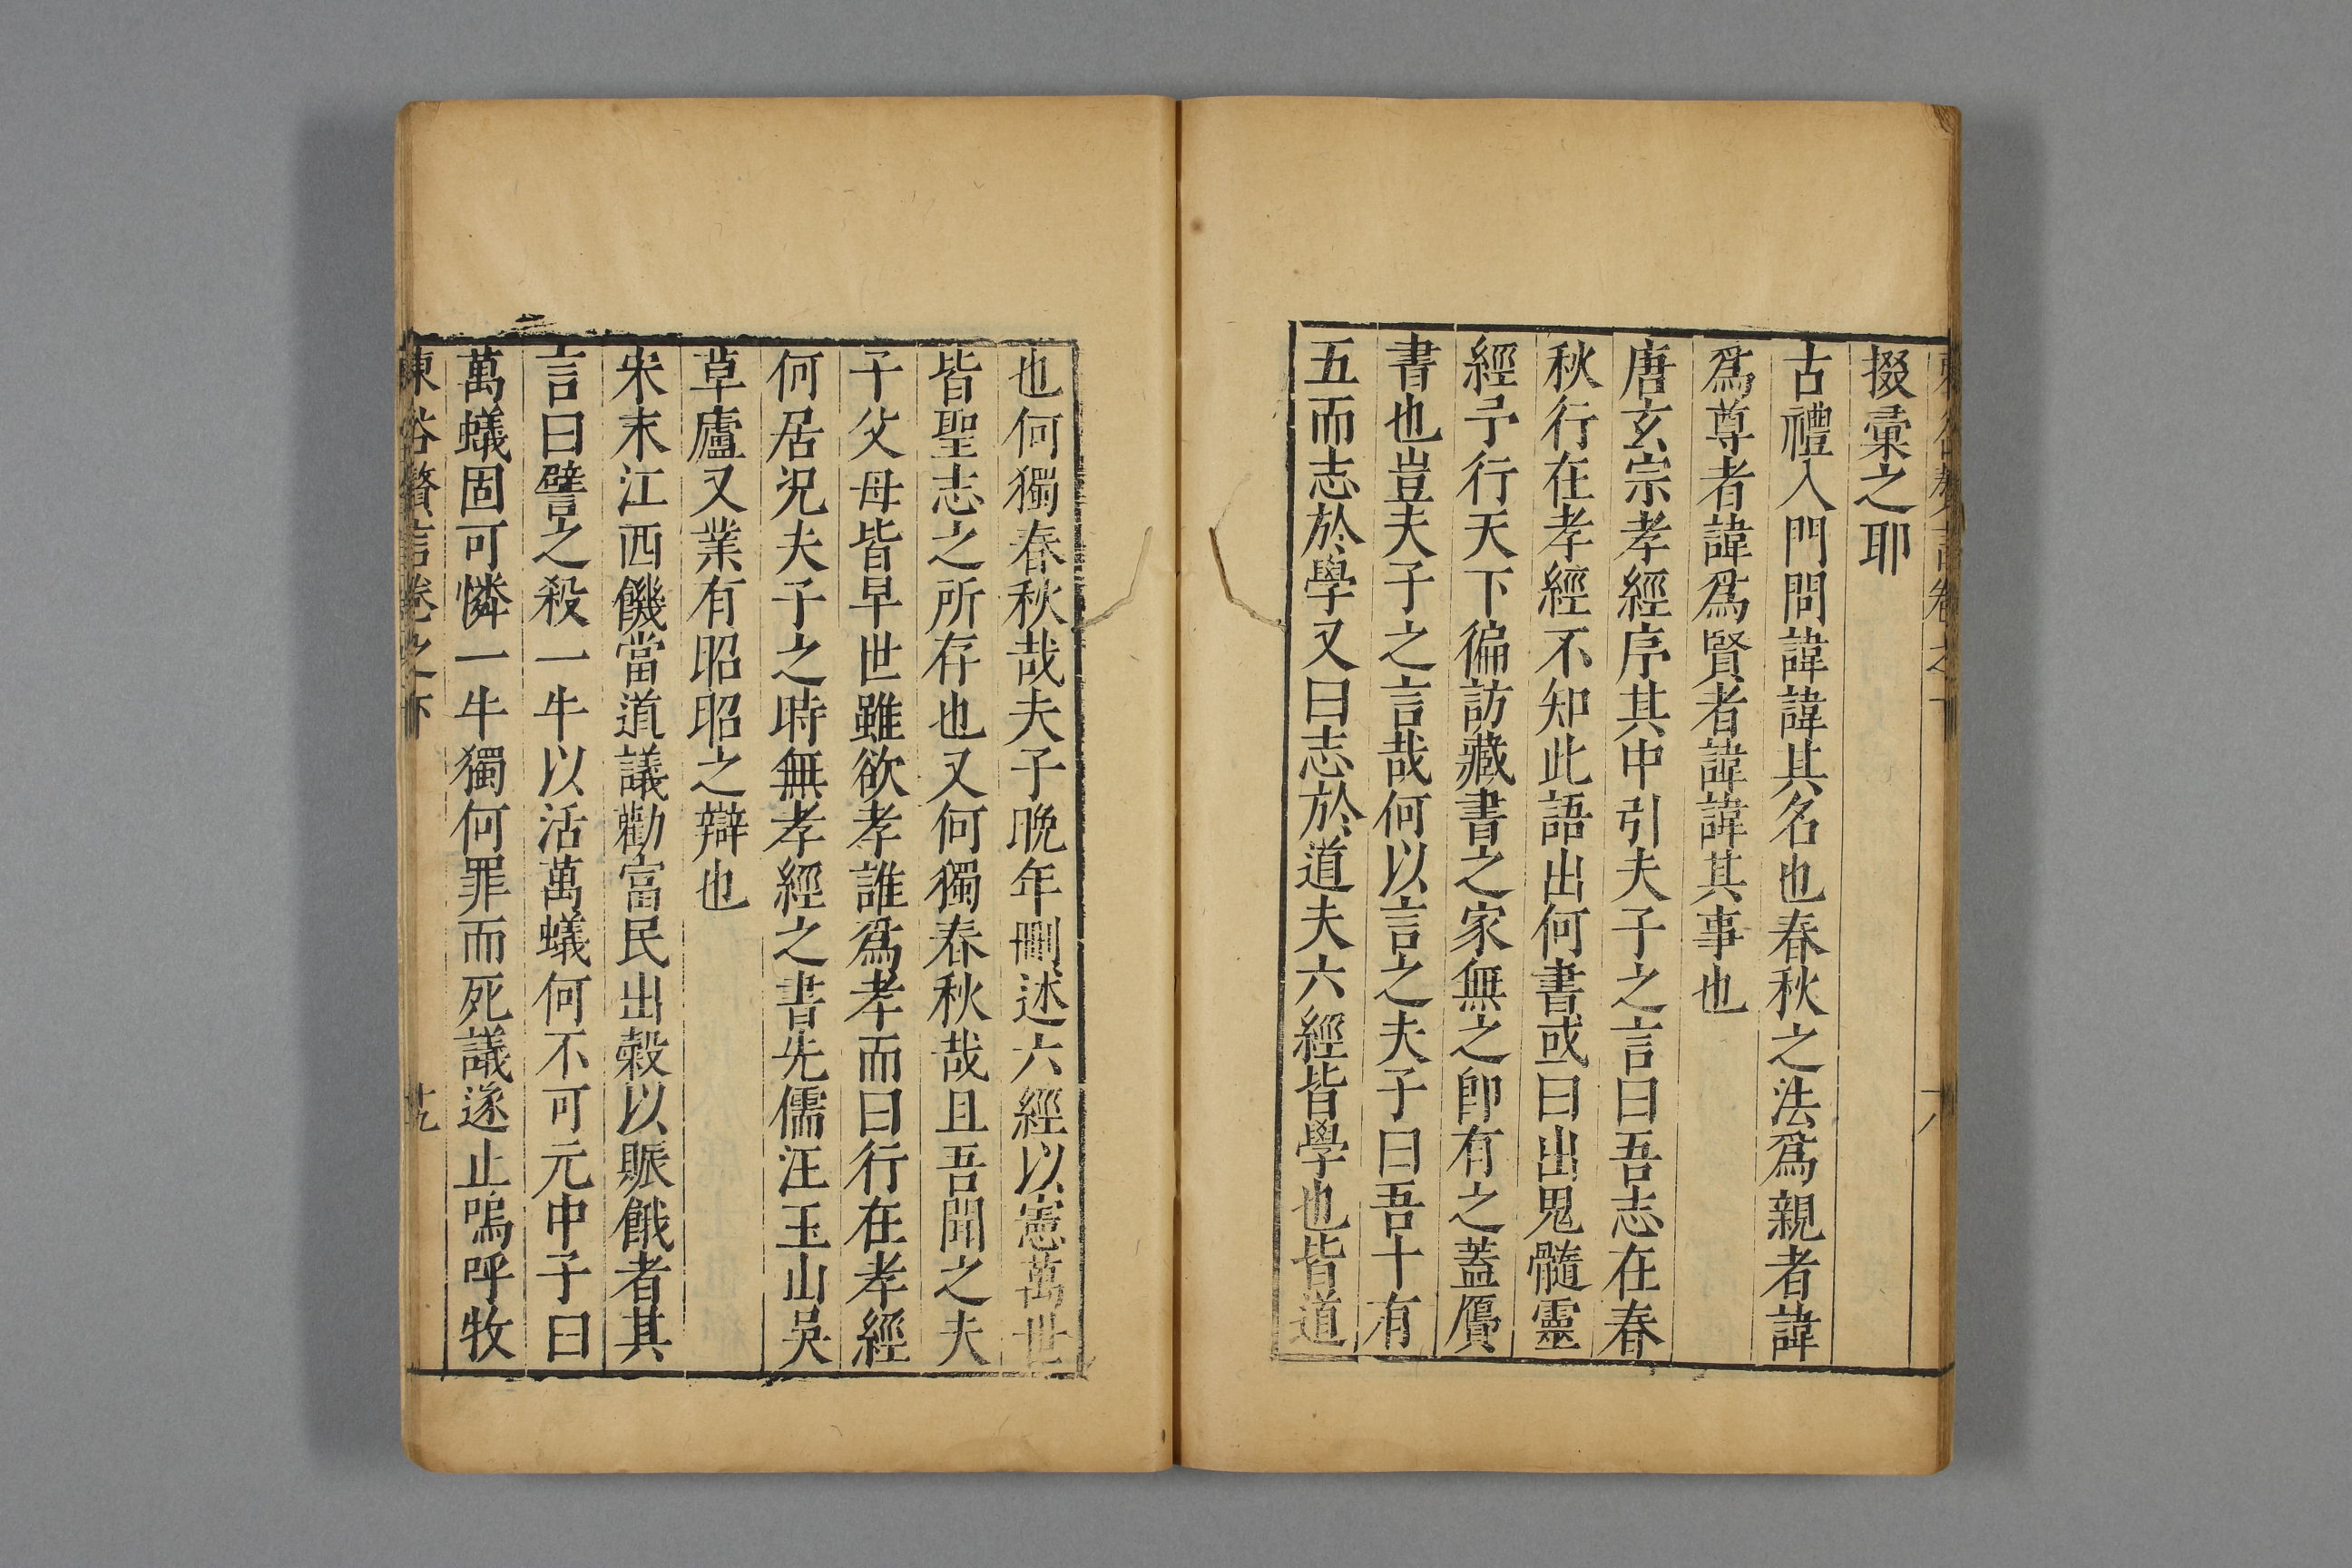 掇彙之耶
古禮入門問諱諱其名也春秋之法爲親者諱
爲尊者諱爲賢者諱諱其事也
唐玄宗孝經序其中引夫子之言曰吾志在春
秋行在孝經不知此語出何書或曰出鬼髓靈
經予行天下徧訪藏書之家無之卽有之蓋贋
書也豈夫子之言哉何以言之夫子曰吾十有
五而志於學又曰志於道夫六經皆學也皆道
也何獨春秋哉夫子晚年刪述六經以憲萬世
皆聖志之所存也又何獨春秋哉且吾聞之夫
子父母皆早世雖欲孝誰爲孝而曰行在孝經
何居況夫子之時無孝經之書先儒汪玉山吳
草廬又業有昭昭之辯也
宋末江西饑當道議勸富民出穀以賑餓者其
言曰譬之殺一牛以活萬蟻何不可元中子曰
萬蟻固可憐一牛獨何罪而死議遂止嗚呼牧
東谷贅言卷之下